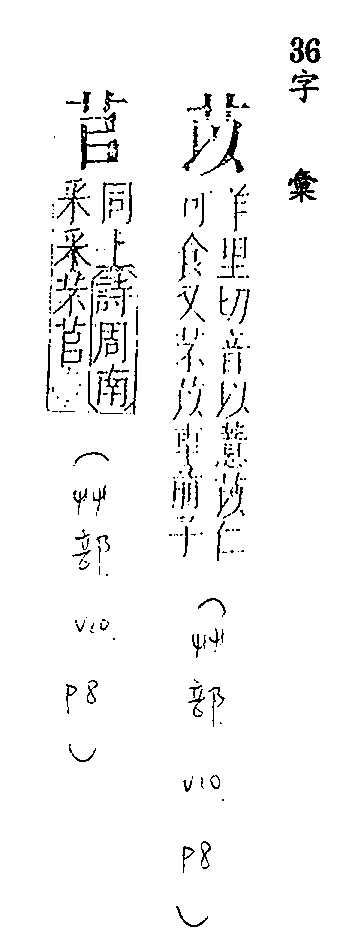 36
字彙
苡
羊里切音以薏苡仁
可食又芣苡車前子
(艸部 V10. P8)
苢
同上詩周南
采采芣苢
(艸部 V10. P8)